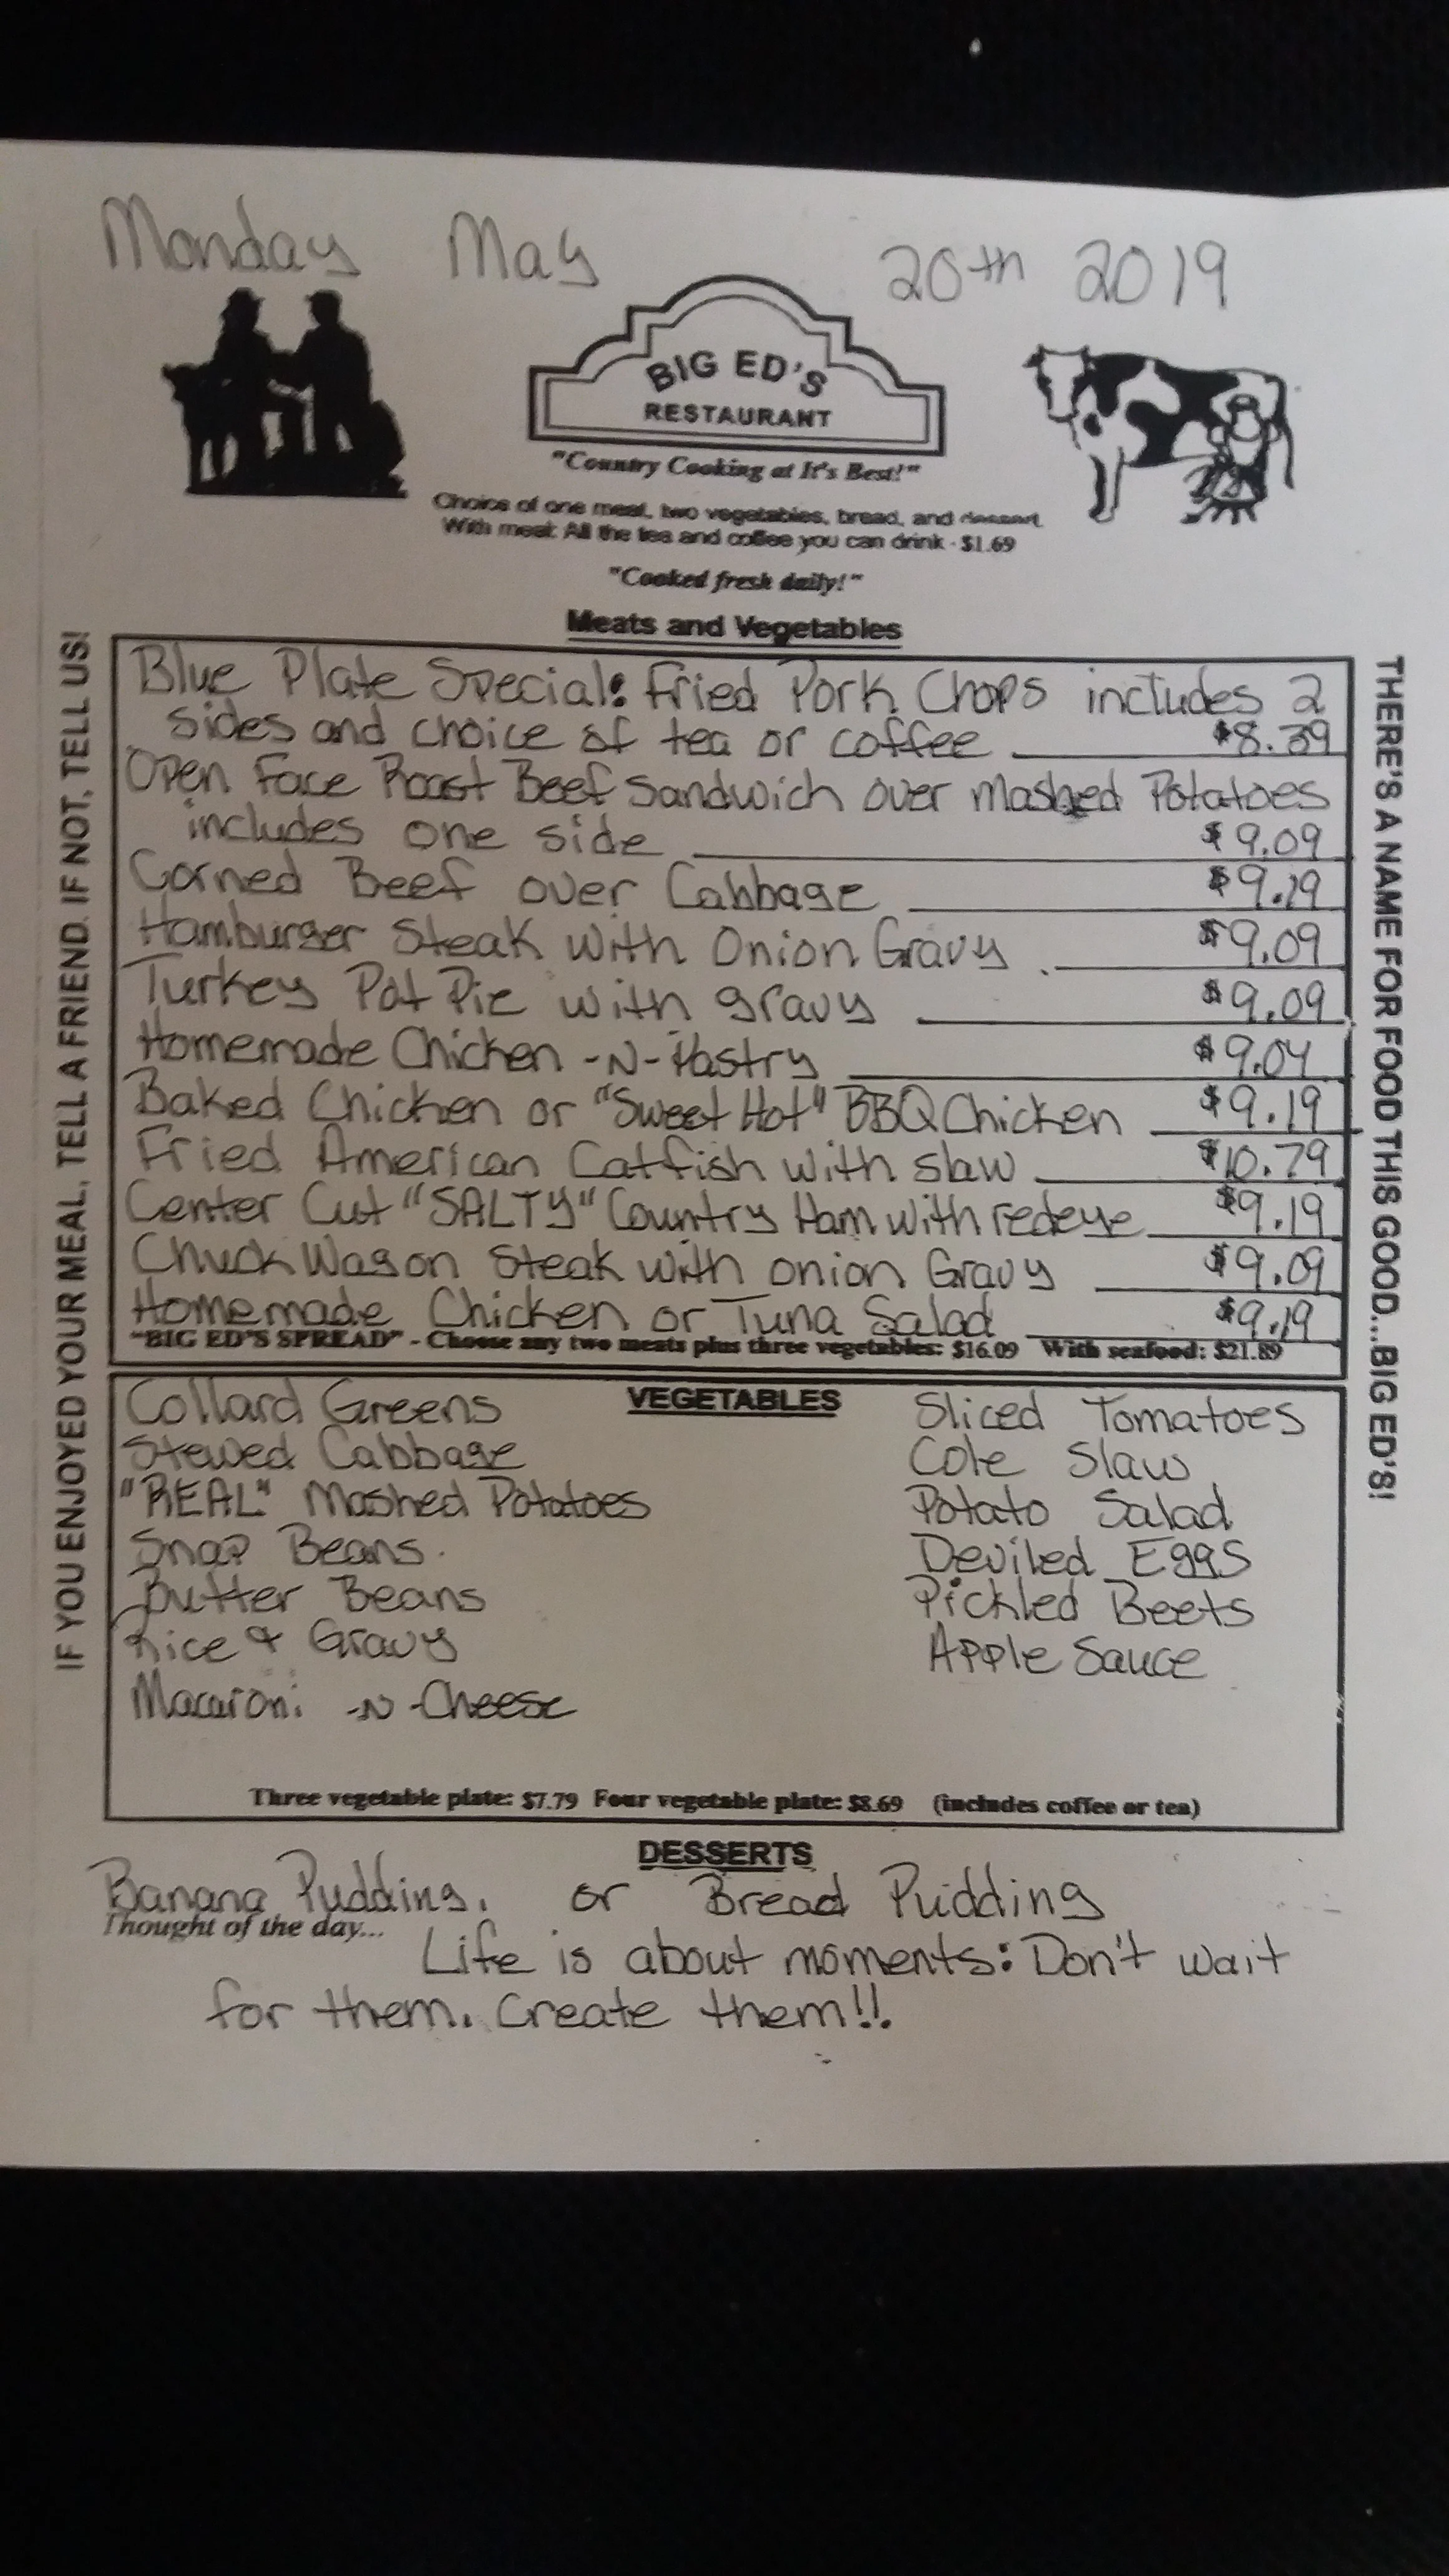 Monday May 20th 2019
BIG ED'S
RESTAURANT
"Country Cooking at It's Best!"
Choice of one meat, two vegetables, bread, and dessert.
With meal: All the tea and coffee you can drink - $1.69
"Cooked fresh daily!"
Meats and Vegetables
Blue Plate Special: Fried Pork Chops includes 2
sides and choice of tea or coffee $8.39
Open Face Roast Beef Sandwich over Mashed Potatoes
includes one side $9.09
Corned Beef over Cabbage $9.19
Hamburger Steak with Onion Gravy $9.09
Turkey Pot Pie with gravy $9.09
Homemade Chicken -N- Pastry $9.09
Baked Chicken or "Sweet Hot" BBQ Chicken $9.19
Fried American Catfish with slaw $10.79
Center Cut "SALTY" Country Ham with redeye $9.19
Chuck Wagon Steak with onion Gravy $9.09
Homemade Chicken or Tuna Salad $9.19
"BIG ED'S SPREAD" - Choose any two meats plus three vegetables: $16.09 With seafood: $21.89
VEGETABLES
Collard Greens
Stewed Cabbage
"REAL" Mashed Potatoes
Snap Beans
Butter Beans
Rice & Gravy
Macaroni -N- Cheese
Sliced Tomatoes
Cole Slaw
Potato Salad
Deviled Eggs
Pickled Beets
Apple Sauce
Three vegetable plate: $7.79 Four vegetable plate: $8.69 (includes coffee or tea)
DESSERTS
Banana Pudding. or Bread Pudding
Thought of the day...
Life is about moments: Don't wait
for them. Create them!!
IF YOU ENJOYED YOUR MEAL, TELL A FRIEND. IF NOT, TELL US!
THERE'S A NAME FOR FOOD THIS GOOD...BIG ED'S!